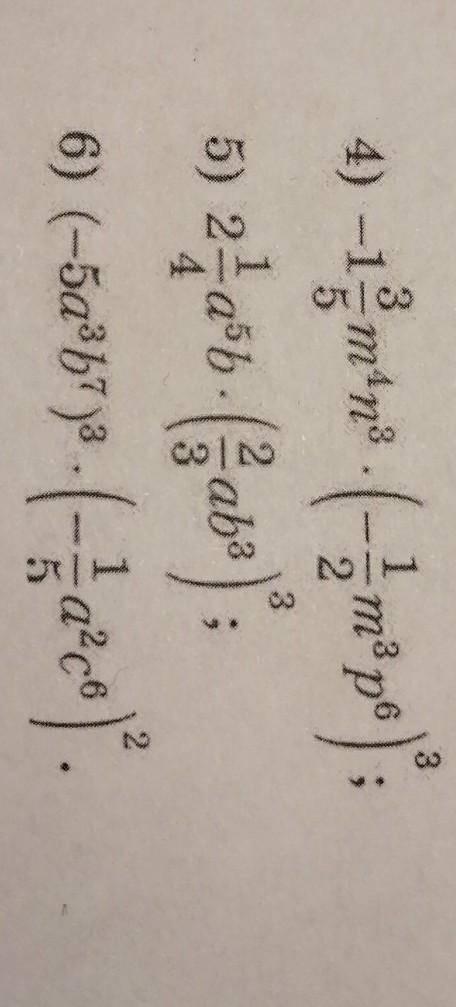 4) −1 3/5 m⁴n³ · (−1/2 m³p⁶)³;
5) 2 1/4 a⁵b · (2/3 ab³)³;
6) (−5a³b⁷)³ · (−1/5 a²c⁶)².